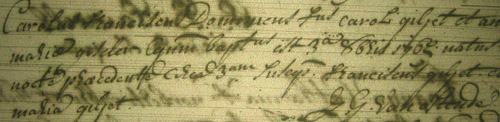 Carolus Franciscus Dominicus filius caroli giljet et an
maria gisler Conjum baptus est 3a 8bris 1766 natus
nocte præcedente circa 3am Suscep: Franciscus giljet et
maria giljet J G Van